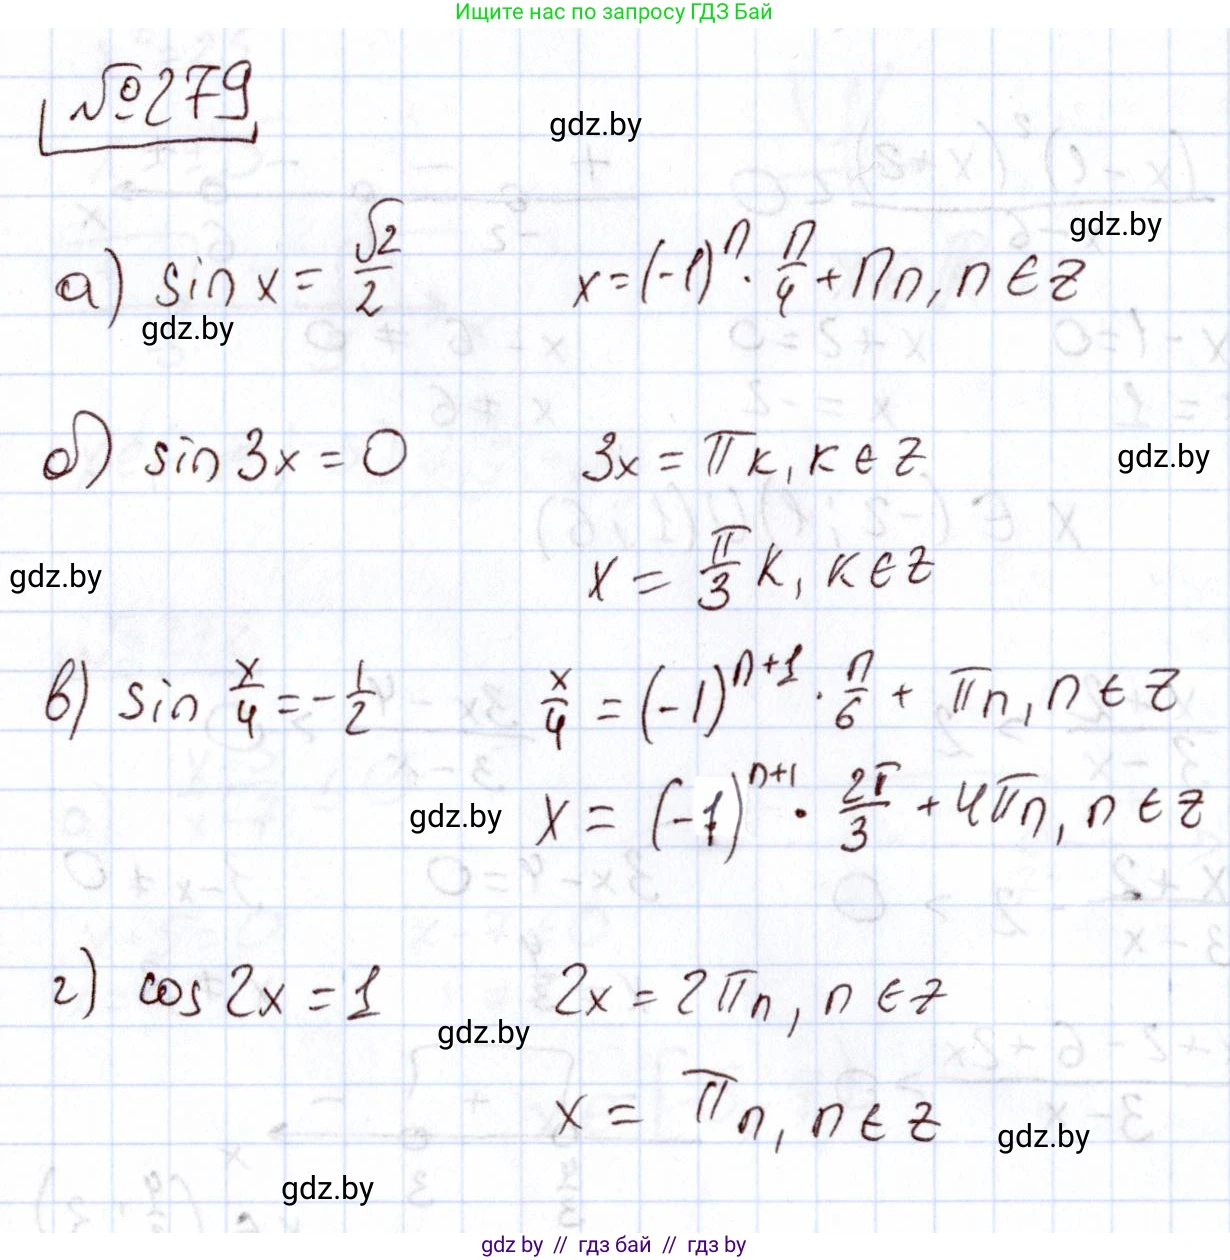 Ищите нас по запросу ГДЗ Бай
№279
gdz.by
gdz.by
а) sin x = √2/2 x = (-1)ⁿ · π/4 + πn, n ∈ Z
gdz.by
б) sin 3x = 0 3x = πk, k ∈ Z
gdz.by
gdz.by
x = π/3 k, k ∈ Z
в) sin x/4 = -1/2 x/4 = (-1)ⁿ⁺¹ · π/6 + πn, n ∈ Z
gdz.by
x = (-1)ⁿ⁺¹ · 2π/3 + 4πn, n ∈ Z
г) cos 2x = 1 2x = 2πn, n ∈ Z
gdz.by
x = πn, n ∈ Z
gdz.by
gdz.by
gdz.by // гдз бай // gdz.by